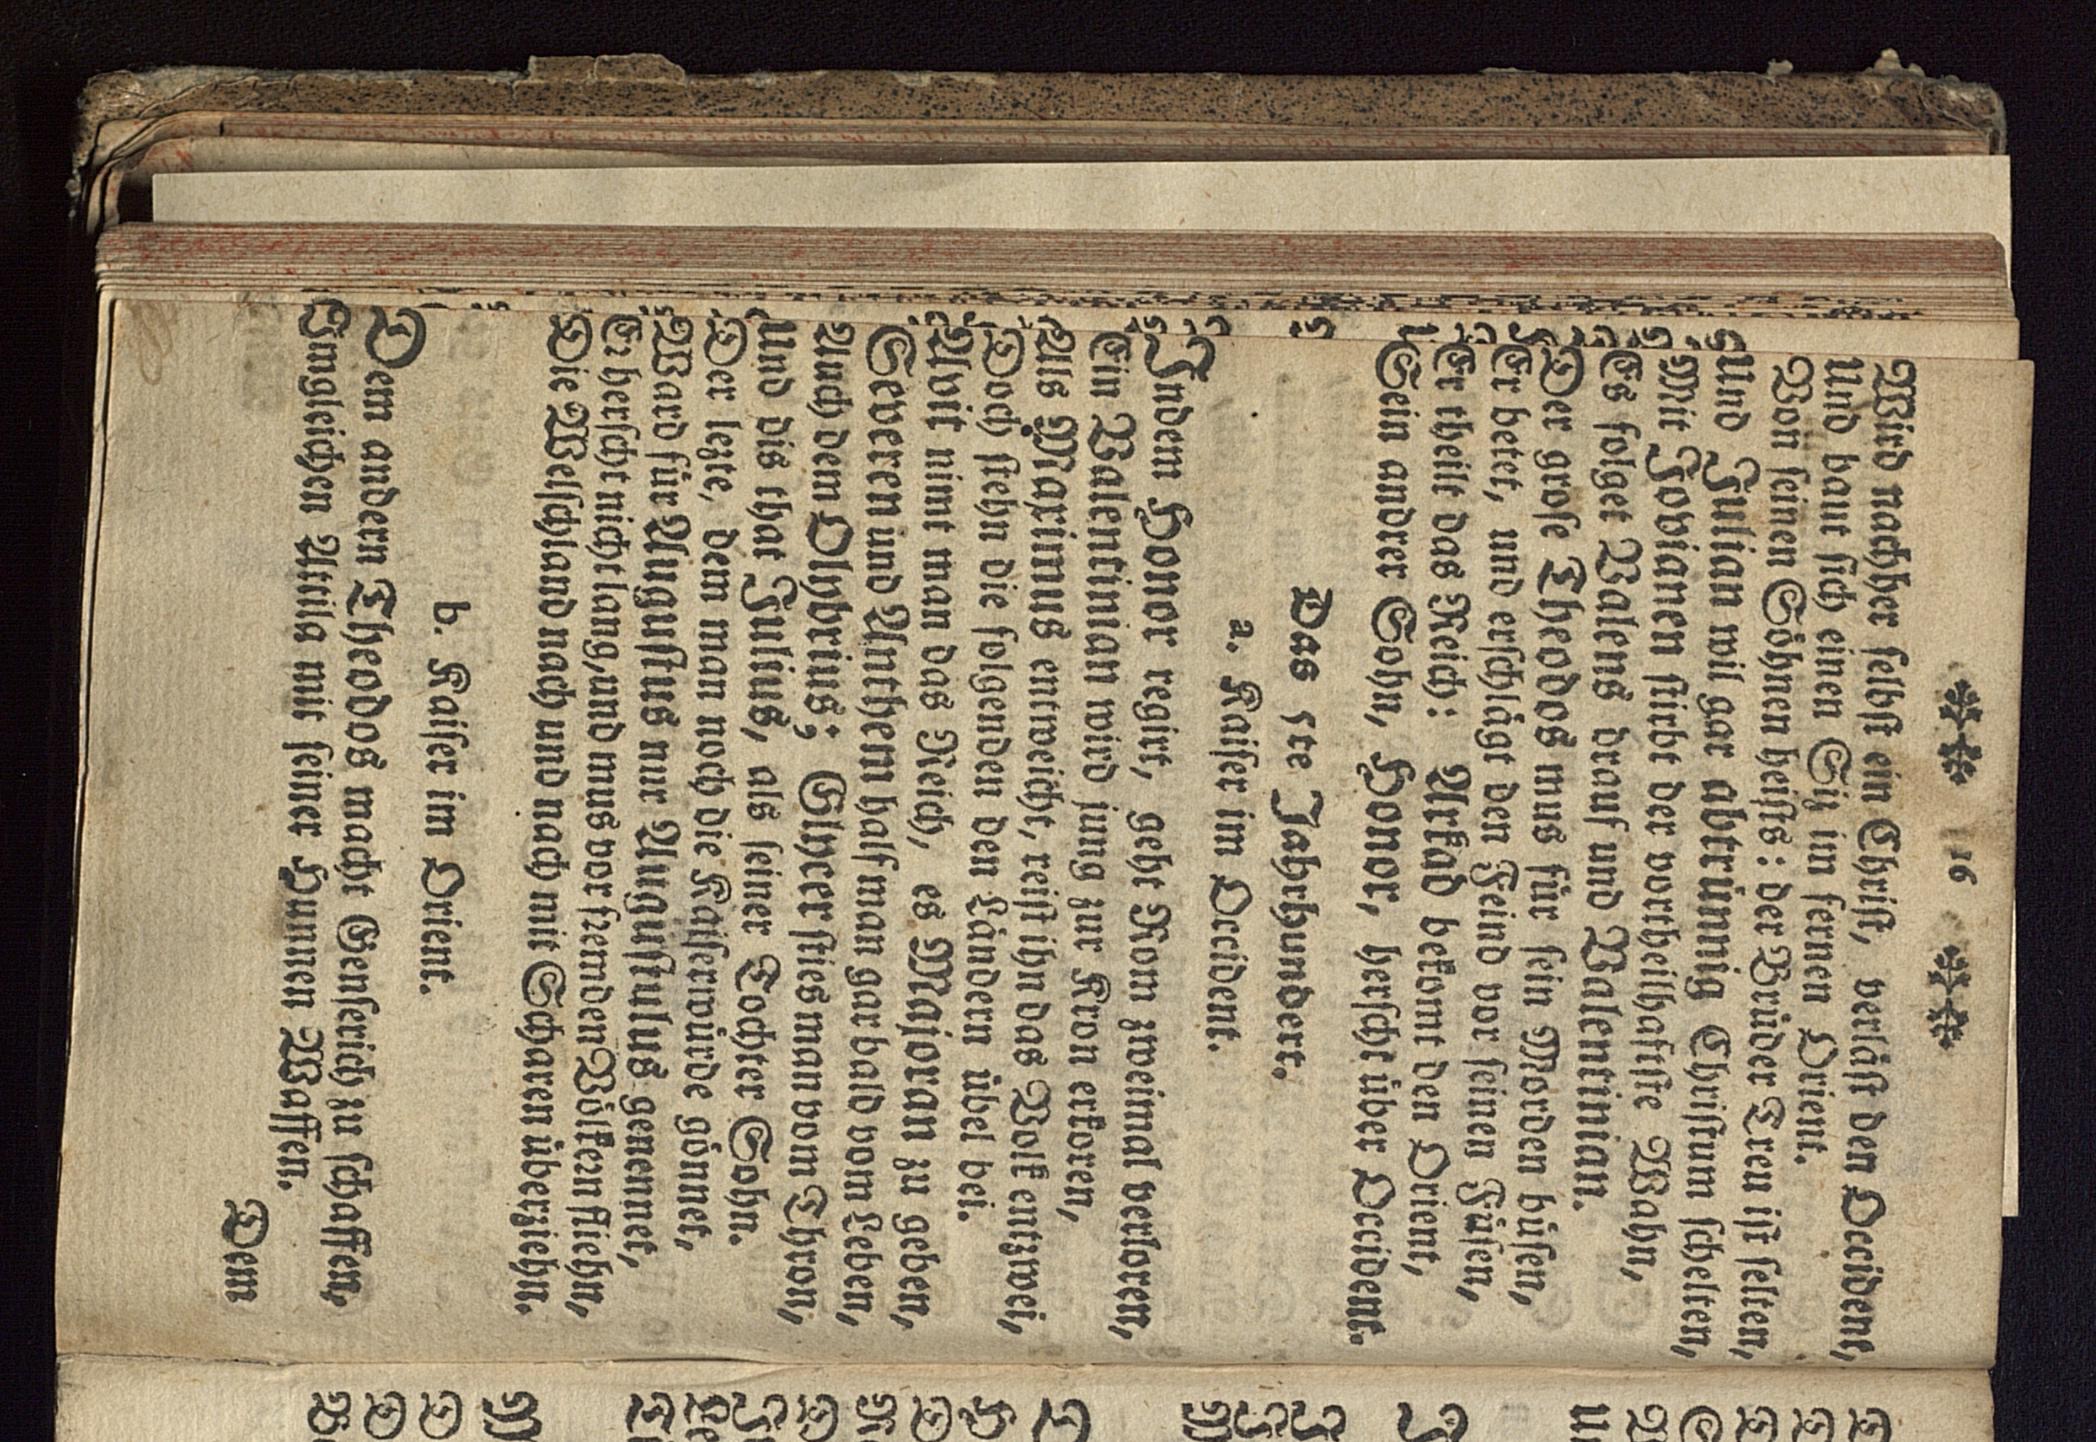 16
Wird nachher selbst ein Christ, verläst den Occident,
Und baut sich einen Siz im fernen Orient.
Von seinen Söhnen heists: der Brüder Treu ist selten,
Und Julian wil gar abtrünnig Christum schelten,
Mit Jovianen stirbt der vortheilhaftste Wahn,
Es folget Valens drauf und Valentinian.
Der grose Theodos mus für sein Morden büsen,
Er betet, und erschlägt den Feind vor seinen Füsen,
Er theilt das Reich: Arkad bekomt den Orient,
Sein andrer Sohn, Honor, herscht über Occident.
Das 5te Jahrhundert.
a. Kaiser im Occident.
Indem Honor regirt, geht Rom zweimal verloren,
Ein Valentinian wird jung zur Kron erkoren,
Als Maximus entweicht, reist ihn das Volk entzwei,
Doch stehn die folgenden den Ländern übel bei.
Avit nimt man das Reich, es Majoran zu geben,
Severen und Anthem half man gar bald vom Leben,
Auch dem Olybrius; Glycer sties man vom Thron,
Und dis that Julius, als seiner Tochter Sohn.
Der lezte, dem man noch die Kaiserwürde gönnet,
Ward für Augustus nur Augustulus genennet,
Er herscht nicht lang, und mus vor fremden Völkern fliehn,
Die Welschland nach und nach mit Scharen überziehn.
b. Kaiser im Orient.
Dem andern Theodos macht Genserich zu schaffen,
Imgleichen Attila mit seiner Hunnen Waffen.
Dem